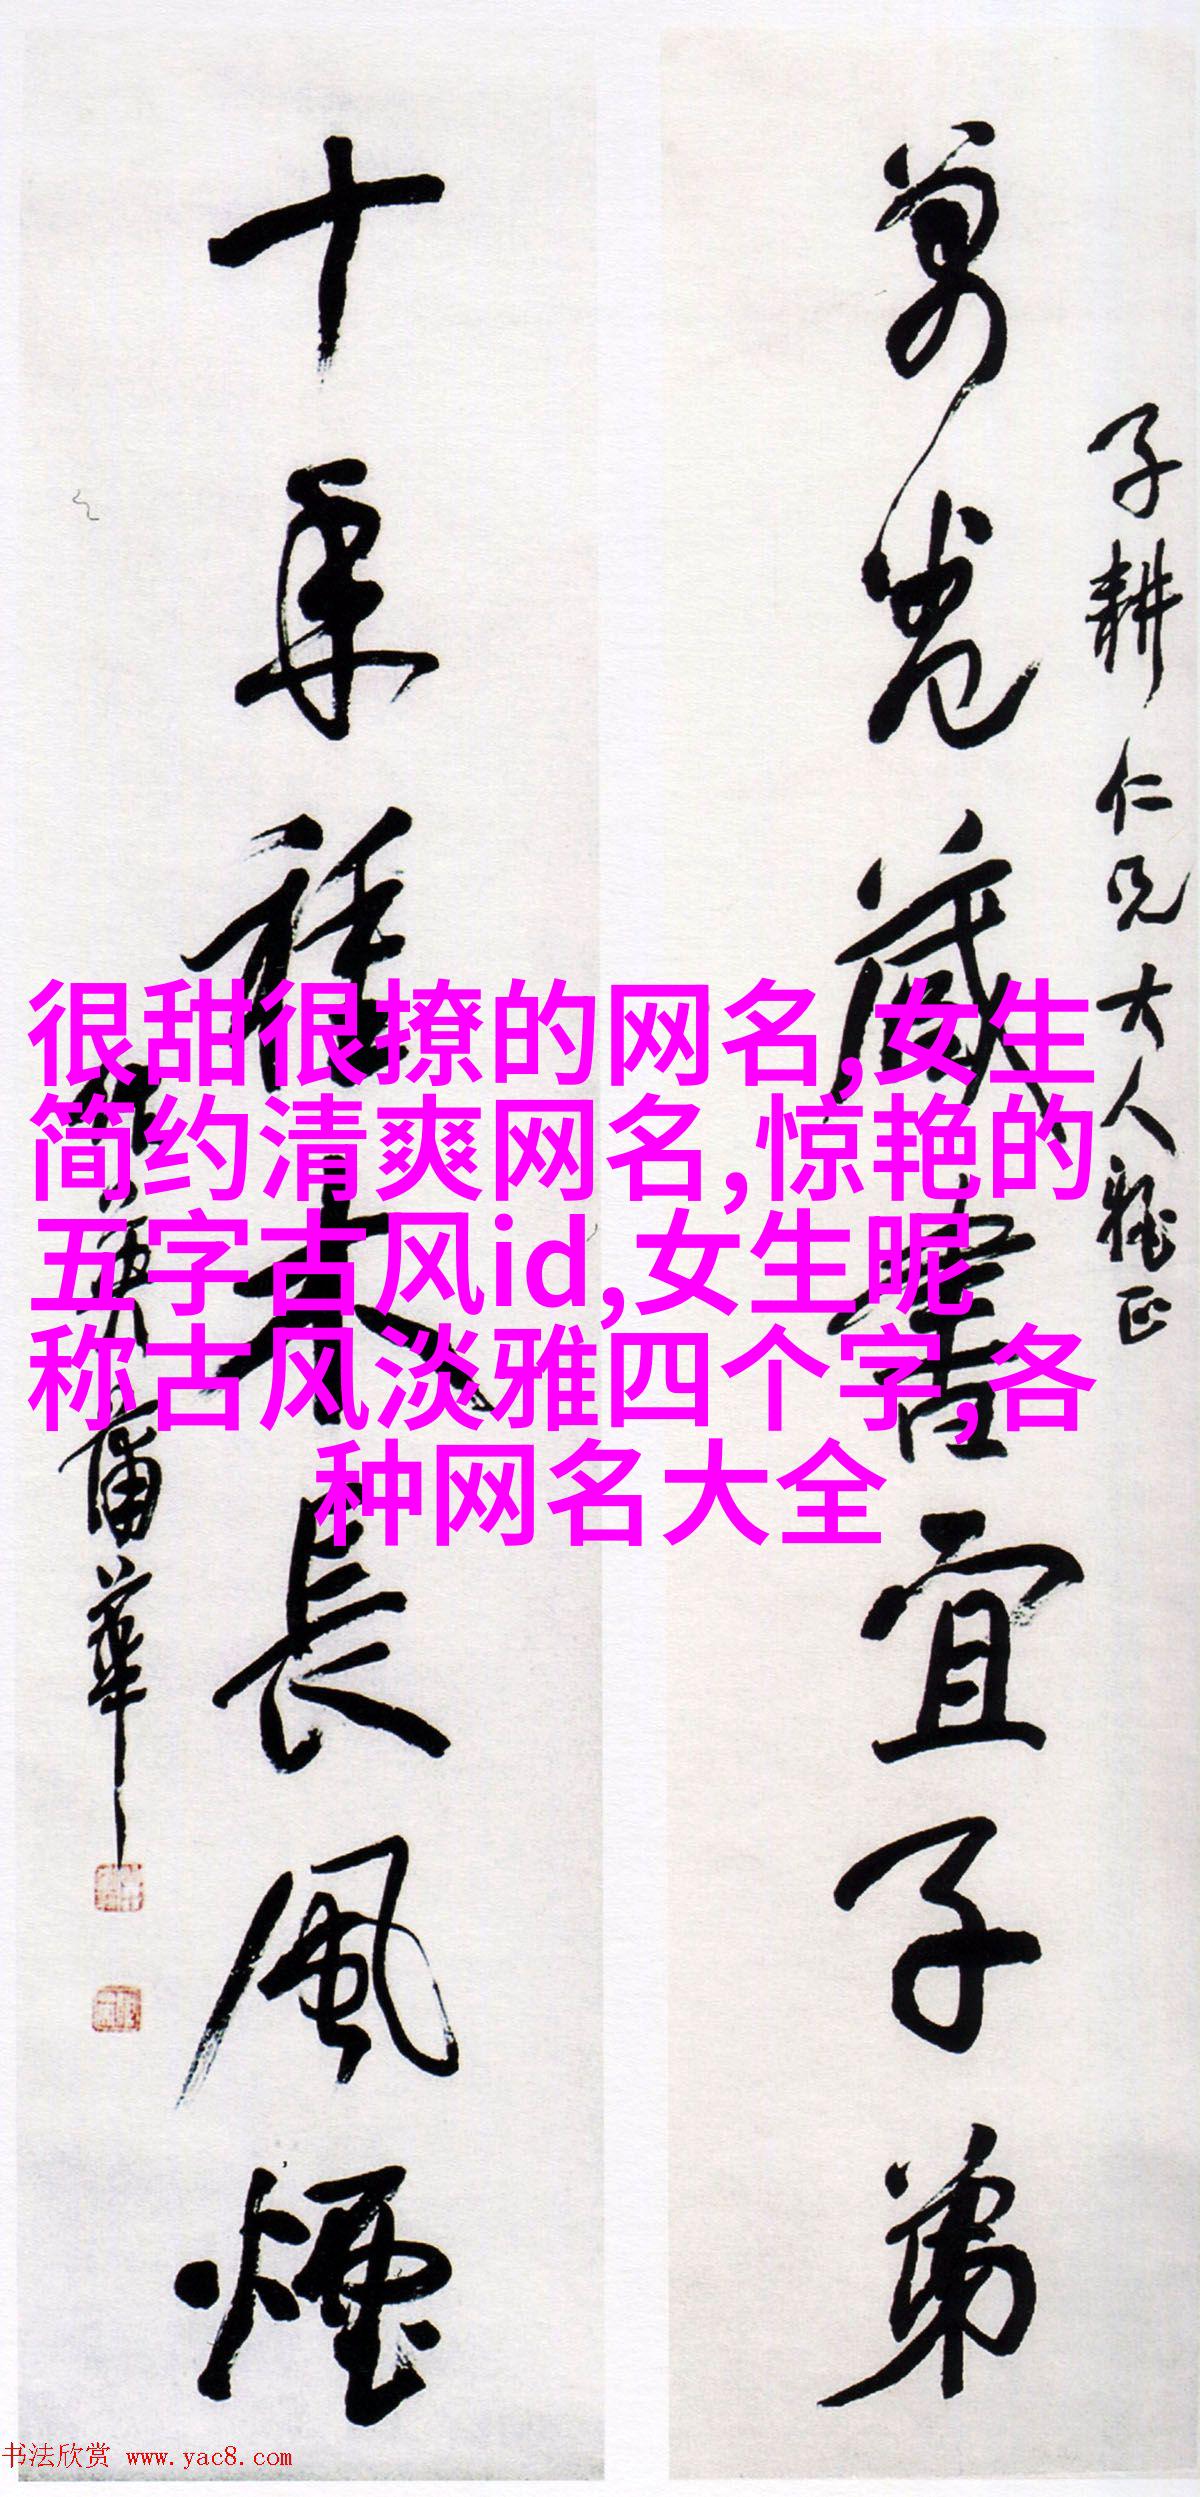 子耕仁兄大人雅正
萬卷藏書宜子弟
十年種木長風煙
蒲華
很甜很撩的网名,女生
简约清爽网名,惊艳的
五字古风id,女生昵
称古风淡雅四个字,各
种网名大全
书法欣赏 www.yac8.com